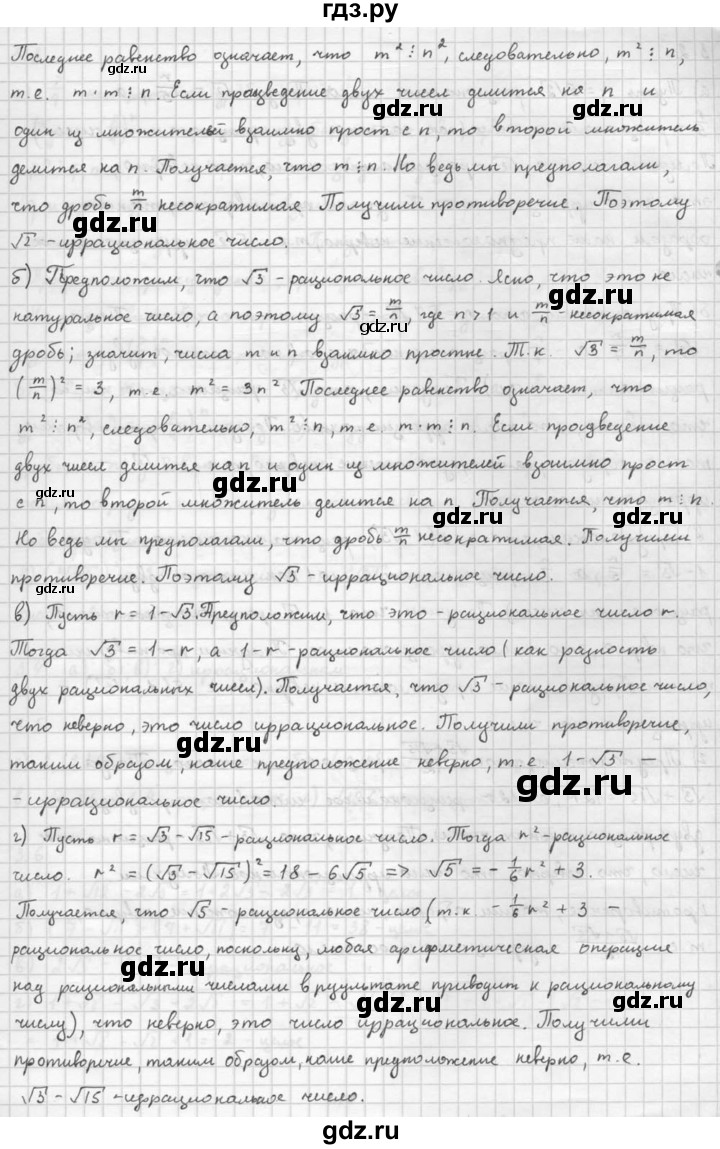 гдз.ру
Последнее равенство означает, что m² ⋮ n², следовательно, m² ⋮ n,
gdz.ru
т.е. m·m ⋮ n. Если прозведение двух чисел делится на n и
gdz.ru
один из множителей взаимно прост с n, то второй множитель
делится на n. Получается, что m ⋮ n. Но ведь мы предполагали,
gdz.ru gdz.ru
что дробь m/n несократимая Получили противоречие. Поэтому
√2 - иррациональное число.
б) Предположим, что √3 - рациональное число Ясно, что это не
gdz.ru
натуральное число, а поэтому √3 = m/n, где n > 1 и m/n - несократимая
gdz.ru
дробь; значит, числа m и n взаимно простые. Т.к. √3 = m/n, то
(m/n)² = 3, т.е. m² = 3n² Последнее равенство означает, что
gdz.ru
m² ⋮ n², следовательно, m² ⋮ n, т.е. m·m ⋮ n. Если произведение
двух чисел делится на n и один из множителей взаимно прост
gdz.ru
с n, то второй множитель делится на n Получается, что m ⋮ n.
gdz.ru gdz.ru
Но ведь мы предполагали, что дробь m/n несократимая. Получили
противоречие. Поэтому √3 - иррациональное число.
gdz.ru
в) Пусть r = 1-√3. Предположим, что это - рациональное число r.
Тогда √3 = 1 - r, а 1-r - рациональное число (как разность
gdz.ru
двух рациональных чисел). Получается, что √3 - рациональное число,
что неверно, это число иррациональное. Получили противоречие,
gdz.ru
таким образом, наше предположение неверно, т.е. 1-√3 -
gdz.ru
- иррациональное число.
г) Пусть r = √3 - √15 - рациональное число. Тогда r² - рациональное
gdz.ru
число. r² = (√3 - √15)² = 18 - 6√5 => √5 = - 1/6 r² + 3.
Получается, что √5 - рациональное число (т.к. - 1/6 r² + 3 -
gdz.ru
рациональное число, поскольку, любая арифметическая операция
gdz.ru
над рациональными числами в результате приводит к рациональному
gdz.ru gdz.ru
числу), что неверно, это число иррациональное. Получили
противоречие, таким образом, наше предположение неверно, т.е.
gdz.ru
√3 - √15 - иррациональное число.
gdz.ru
gdz.ru